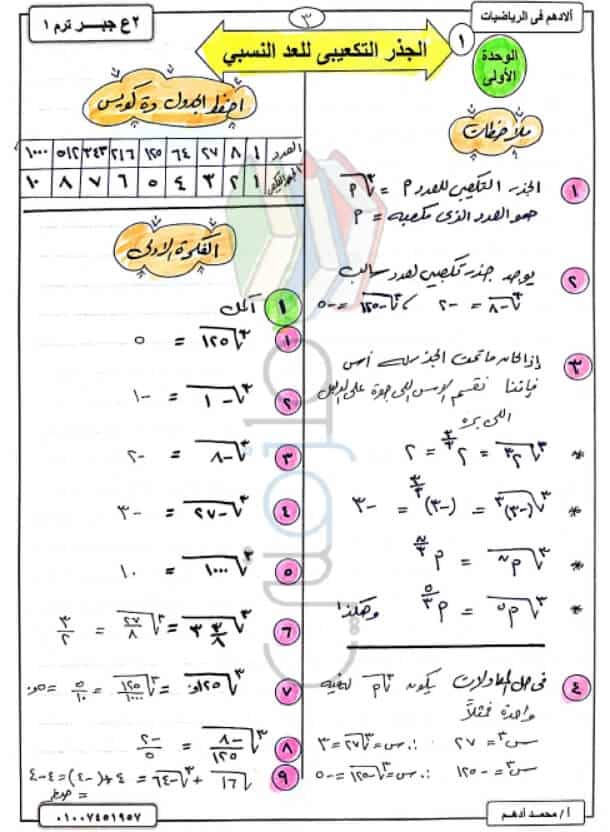 ألادهم فى الرياضيات
٣
٢ ع جبر ترم ١
الوحدة الأولى
١
الجذر التكعيبى للعدد النسبي
ملاحظات
١ الجذر التكعيبى للعدد م = ∛م
هو العدد الذى مكعبه = م
٢ يوجد جذر تكعيبى لعدد سالب
∛-٨ = -٢ ، ∛-١٢٥ = -٥
٣ إذا كان ما تحت الجذر له أس
فإننا نقسم الاس اللى جوة على الدليل
اللى بره
* ∛٢^٣ = ٢^(٣/٣) = ٢
* ∛(-٣)^٣ = (-٣)^(٣/٣) = -٣
* ∛م^ن = م^(ن/٣)
* ∛م^٥ = م^(٥/٣) وهكذا
٤ فى حل المعادلات يكون ∛م لها قيمة
واحدة فمثلاً
س^٣ = ٢٧ ∴ س = ∛٢٧ = ٣
س^٣ = -١٢٥ ∴ س = ∛-١٢٥ = -٥
احفظ الجدول دة كويس
العدد ١ ٨ ٢٧ ٦٤ ١٢٥ ٢١٦ ٣٤٣ ٥١٢ ١٠٠٠
١ ٢ ٣ ٤ ٥ ٦ ٧ ٨ ١٠
الفكرة الاولى
١ أكمل
١ ∛١٢٥ = ٥
٢ ∛-١ = -١
٣ ∛-٨ = -٢
٤ ∛-٢٧ = -٣
٥ ∛١٠٠٠ = ١٠
٦ ∛(٣ ٣/٨) = ∛(٢٧/٨) = ٣/٢
٧ ∛٠,١٢٥ = ∛(١٢٥/١٠٠٠) = ٥/١٠ = ٠,٥
٨ ∛(-٨/١٢٥) = -٢/٥
٩ √١٦ + ∛-٦٤ = ٤ + (-٤) = ٤-٤ = صفر
أ / محمد أدهم
٠١٠٠٧٤٥١٩٥٧